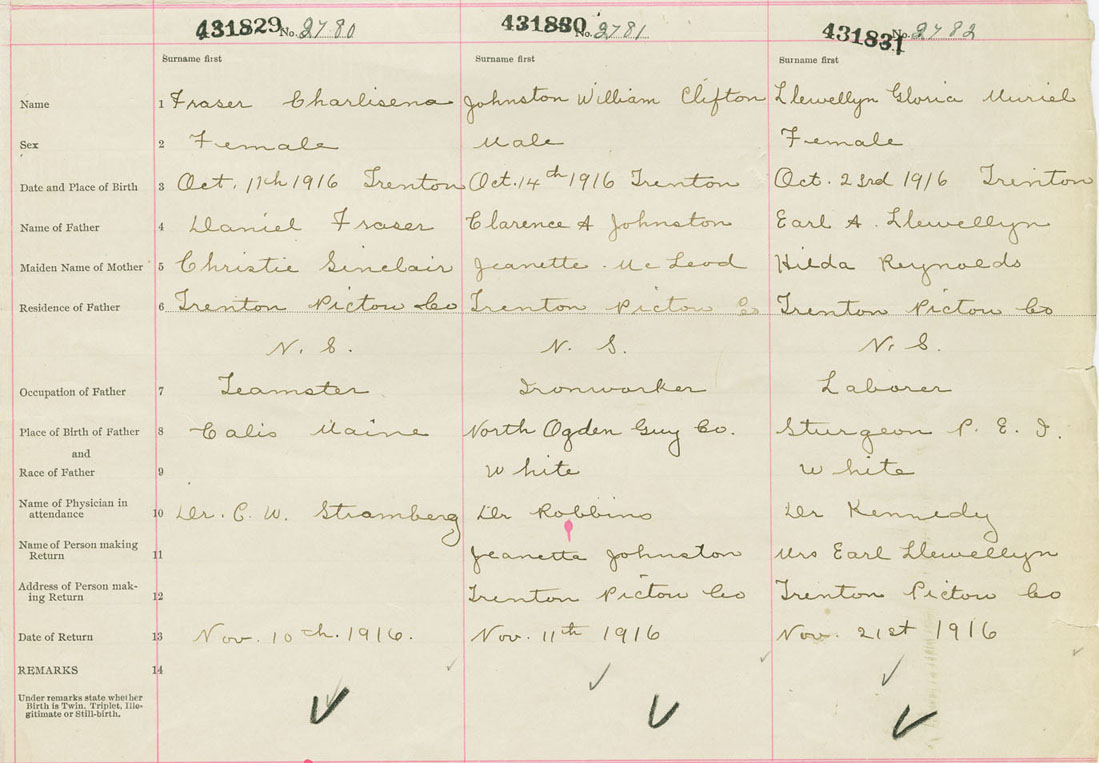 431829 No. 2780 431830 No. 2781 431831 No. 2782
Surname first Surname first Surname first
Name 1 Fraser Charlisena Johnston William Clifton Llewellyn Gloria Muriel
Sex 2 Female Male Female
Date and Place of Birth 3 Oct. 11th 1916 Trenton Oct. 14th 1916 Trenton Oct. 23rd 1916 Trenton
Name of Father 4 Daniel Fraser Clarence A Johnston Earl A. Llewellyn
Maiden Name of Mother 5 Christie Sinclair Jeanette McLeod Hilda Reynolds
Residence of Father 6 Trenton Pictou Co Trenton Pictou Co Trenton Pictou Co
N. S. N. S. N. S.
Occupation of Father 7 Teamster Ironworker Laborer
Place of Birth of Father 8 Calis Maine North Ogden Guy Co. Sturgeon P. E. I.
and
Race of Father 9 White White
Name of Physician in
attendance 10 Dr. C. W. Stramberg Dr Robbins Dr Kennedy
Name of Person making
Return 11 Jeanetta Johnston Mrs Earl Llewellyn
Address of Person mak-
ing Return 12 Trenton Pictou Co Trenton Pictou Co
Date of Return 13 Nov. 10th. 1916. Nov. 11th 1916 Nov. 21st 1916
REMARKS 14
Under remarks state whether
Birth is Twin, Triplet, Ille-
gitimate or Still-birth.